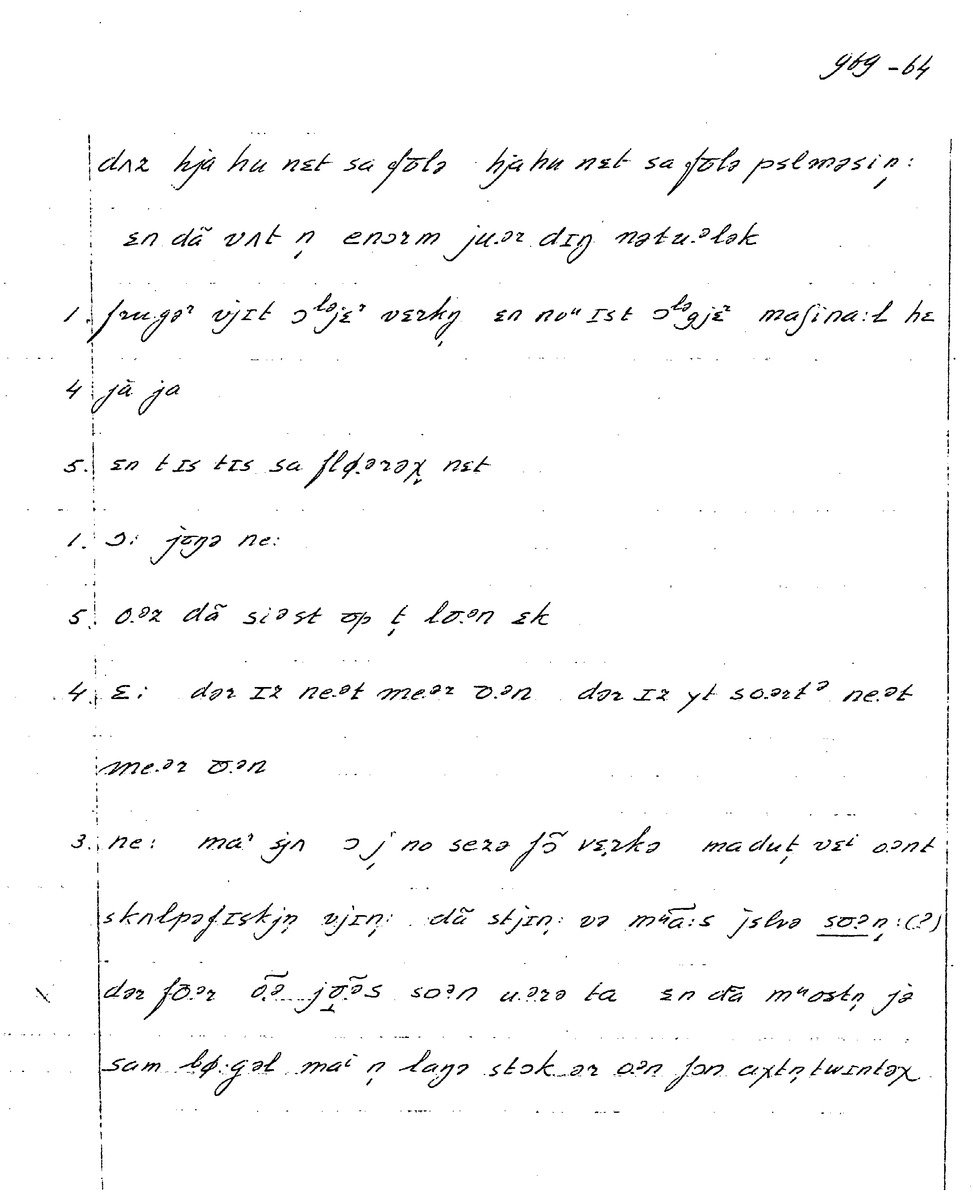 969-64
dʌz hja hu nɛt sa fōlə hja hu nɛt sa fōlə pslməsiṇ:
ɛn dã vʌt ṇ enɔrm ju.ər dɪŋ nətu.ələk
1. frugər vjɪt ɔləjɛr vɛrkṇ ɛn nuu ɪst ɔləgjɛr maʃina:l hɛ
4 jà ja
5. ɛn tɪs tɪs sa flø.ərəχ nɛt
1. ɔ: jōŋə ne:
5. o.əz dã siəst ōp ṭ lō.ən ɛk
4. ɛ: dər ɪz ne.ət me.ər ō.ən dər ɪz yt so.ərtə ne.ət
me.ər ō.ən
3. ne: mai ɔ j no sezə fɔ̃ vɛrkə maduṭ vɛi oənt
skʌlpəfɪskjṇ vjɪṇ: dã stjɪṇ: və muã:s jslvə soəṇ:(?)
dər fō.ər õ.ə jõ.əs soən u.ərə ta ɛn dã muostṇ jə
sam bø:gəl mai ṇ laŋə stɔk ər oən fɔn aχtṇtwɪntəχ